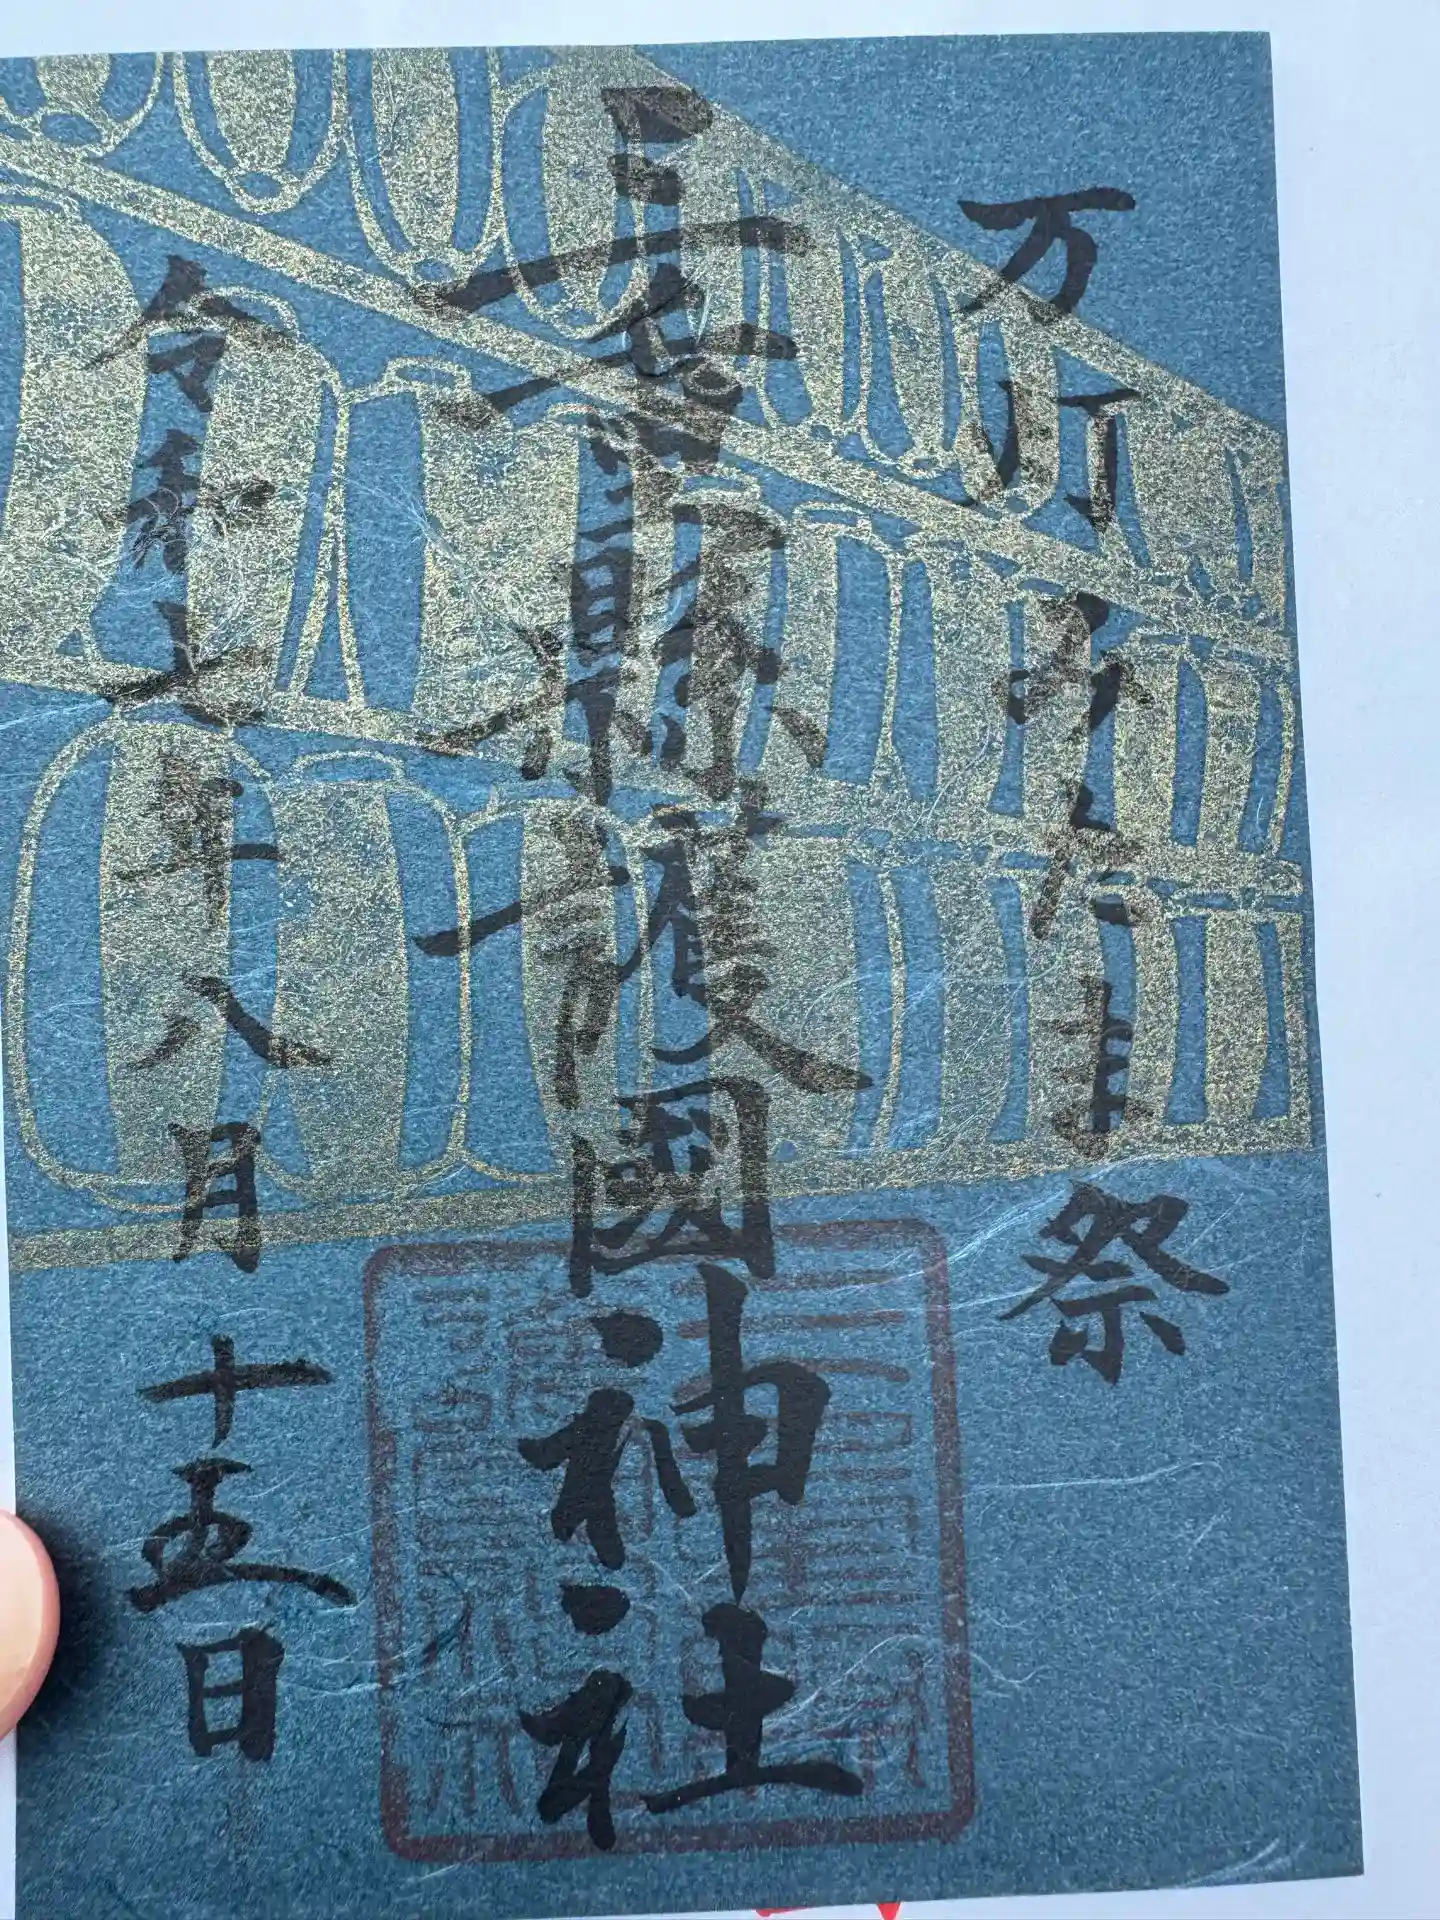 万灯みたま祭
三重縣護國神社
令和七年八月十五日